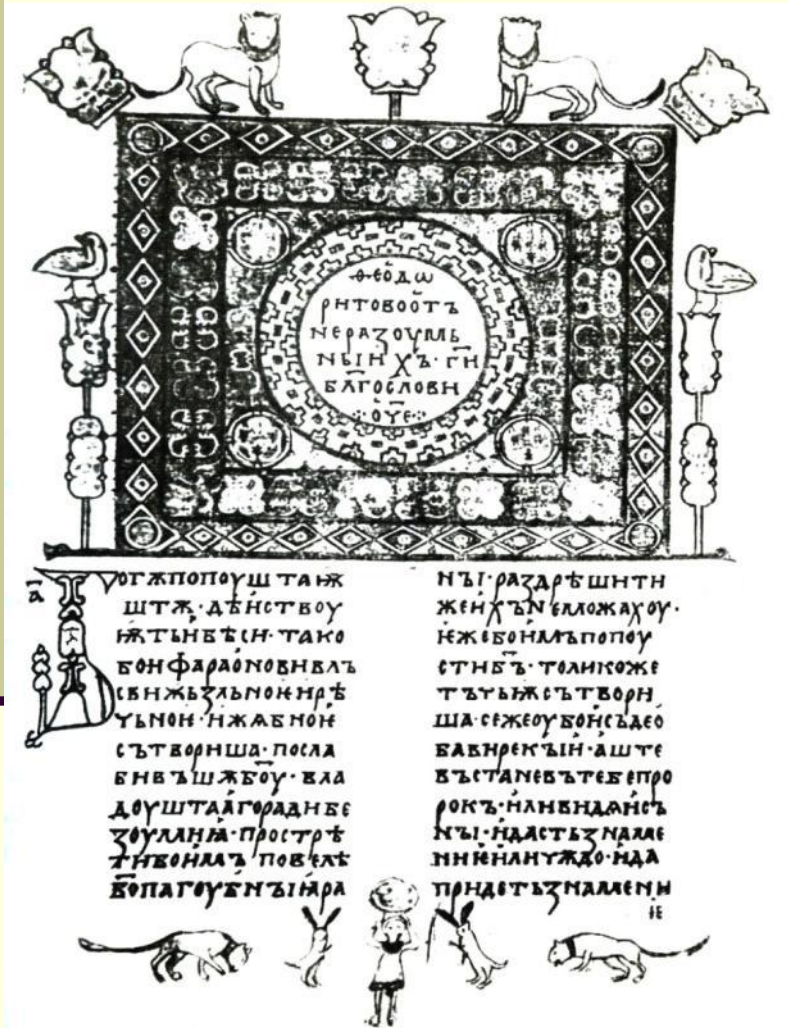 ѲЕОДѠ
РИТОВООТЪ
НЕРАЗОУМЬ
НЫИХЪ· ГН
БЛАГОСЛОВИ
ОЧЕ
ОГѪПОПОУШТАѬ
ШТѪ· ДѢИСТВОУ
ѬТЬНБѢСИ· ТАКО
БОИФАРАОНОВИВЛЪ
СВИЖЬЗЪЛЬНОИНРѢ
СЪТВОРИША· ПОСЛА
ДОУШТААГОРАДИБЕ
ЗОУМИꙖ· ПРОСТРѢ
ТИБОИМЪ ПОВЕЛѢ
БОПАГОУБНЪІꙖРА
НЪІ· РАЗДРѢШИТИ
ЖЕИХЪНЕМОЖАХОУ·
ѤЖЕБОИМЪПОПОУ
СТИБЪ· ТОЛИКОЖЕ
ТЪЧЬѬСЪТВОРИ
ША· СЕЖЕОУБОИСЪДЕѠ
БАВИРЕКЪІИ· АШТЕ
ВЪСТАНЕВЪТЕБЕПРО
РОКЪ· ИЛИВИДѦИСЪ
НЪІ· ИДАСТЬЗНАМЕ
НИѤИЛИЧѪДО· ИДА
ПРИДЕТЬЗНАМЕНИ
Ѥ